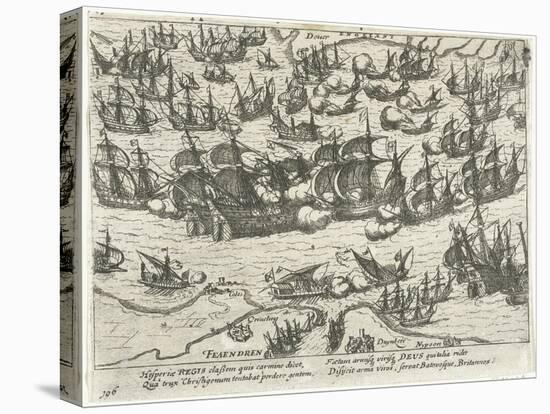 Douer ENGELANT
Cales
Greueling
Duynkerc
Nypoort
FLAENDREN
Hesperiæ REGIS classem quis carmine dicet,
Quâ trux Christigenum tentabat perdere gentem,
Factum armisq́ virisq́ DEUS qui talia ridet
Disijcit arma viros, seruat Batauosque, Britannos.
196